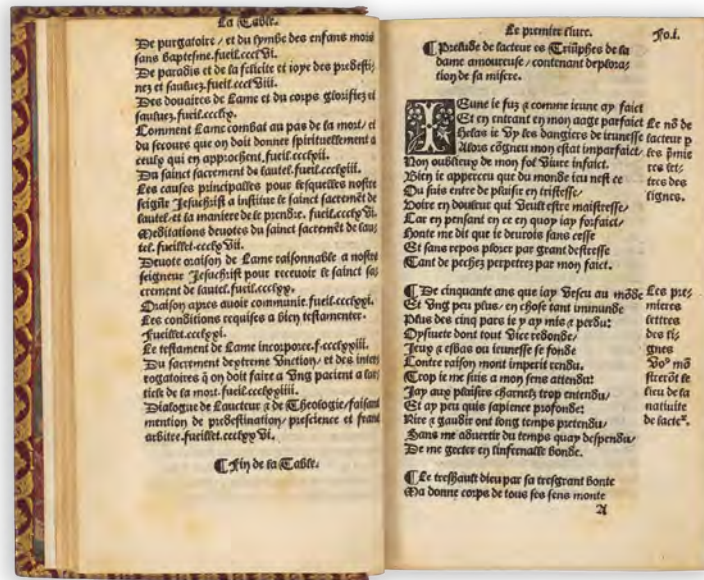 La Table.
De purgatoire / et du lymbe des enfans mors
sans baptesme. fueil. cccl Viii.
De paradis et de la felicite et ioye des predesti-
nez et sauluez. fueil. cccl Viii.
Des douaires de Lame et du corps glorifiez et
sauluez. fueil. ccclx.
Comment Lame combat au pas de la mort / et
du secours que on doit donner spirituellement a
ceulx qui en approchent. fueil. ccclxii.
Du sainct sacrement de lautel. fueil. ccclxiii.
Les causes principalles pour lesquelles nostre
seigñr Jesuchrist a institue le sainct sacremēt de
lautel / et la maniere de le prendre. fueil. ccclx Vi.
Meditations deuotes du sainct sacrement de lau-
tel. fueillet. ccclx Vii.
Deuote oraison de Lame raisonnable a nostre
seigneur Jesuchrist pour receuoir le sainct sa-
crement de lautel. fueil. ccclxx.
Oraison apres auoir communie. fueil. ccclxxi.
Les conditions requises a bien testamenter.
Fueillet. ccclxxi.
Le testament de Lame incorporee. f. ccclxxiii.
Du sacrement dextreme Vnction / et des inter
rogatoires q̄ on doit faire a Vng pacient a lar-
ticle de la mort. fueil. ccclxxiiii.
Dialogue de Laucteur & de Theologie / faisant
mention de predestination / prescience et franc
arbitre. fueillet. ccclxx Vi.
¶ Fin de la Table.
Le premier liure. Fo.i.
¶ Prelude de lacteur es Triūphes de la
dame amoureuse / contenant deplora-
tion de sa misere.
IEune ie fuz & comme ieune ay faict
Et en entrant en mon aage parfaict
Helas ie Vy les dangiers de ieunesse
Alors cōgneu mon estat imparfaict /
Non oublieux de mon fol Viure infaict.
Bien ie apperceu que du monde ieu nest ce
Ou suis entre de plaisir en tristesse /
Voire en douleur qui Veult estre maistresse /
Car en pensant en ce en quoy iay forfaict /
Honte me dit que ie deurois sans cesse
Et sans repos plorer par grant destresse
Tant de pechez perpetrez par mon faict.
Le nō de
lacteur p
les p̄mie
res let-
tres des
lignes.
¶ De cinquante ans que iay Vescu au mōde
Et Vng peu plus / en chose tant immunde
Plus des cinq pars ie y ay mis & perdu:
Oysiuete dont tout Vice redonde /
Jeux & esbas ou ieunesse se fonde
Contre raison mont imperit rendu.
Trop ie me suis a mon sens attendu:
Jay aux plaisirs charnelz trop entendu /
Et ay peu quis sapience profonde:
Rire & gaudir ont long temps pretendu /
Sans me aduertir du temps quay despendu /
De me gecter en linfernalle bonde.
Les pre-
mieres
lettres
des li-
gnes
Voꝰ mō
strerōt le
lieu de la
natiuite
de lacte².
¶ Le treshault dieu par sa tresgrant bonte
Ma donne corps de tous ses sens monte
A